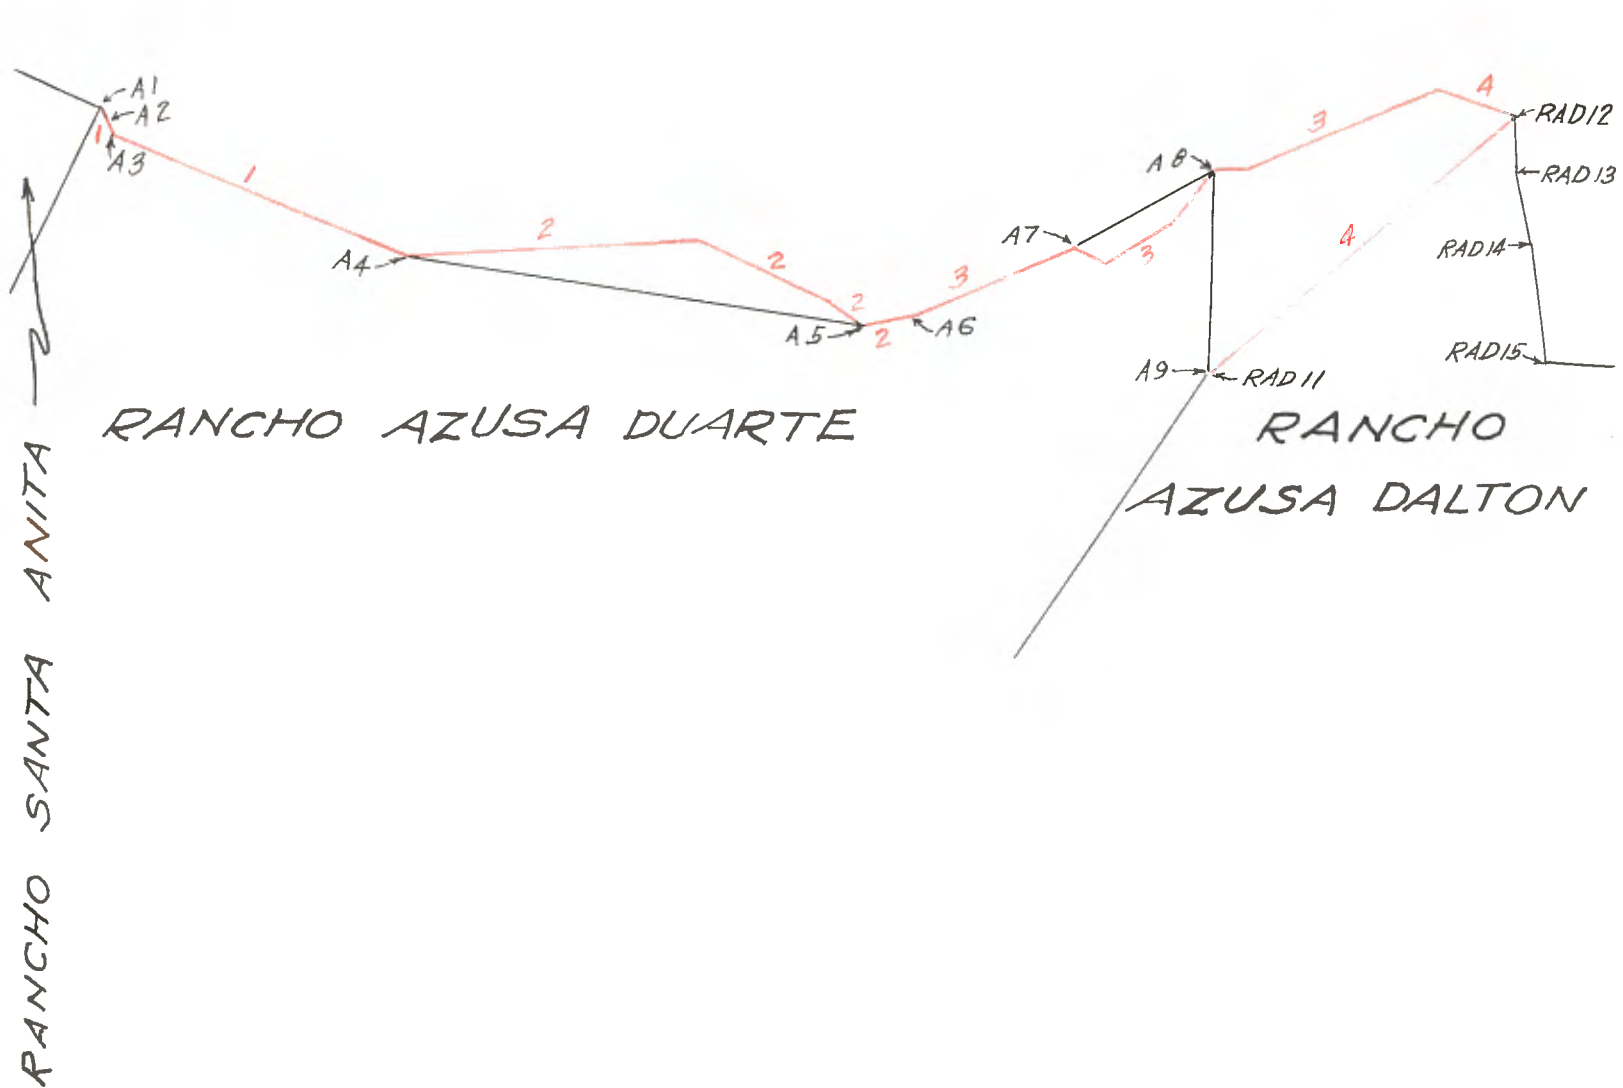 A1
A2
A3
1
1
A4
2
2
2
2
A5
A6
3
A7
3
A8
3
4
4
A9
RAD 11
RAD12
RAD13
RAD14
RAD15
RANCHO AZUSA DUARTE
RANCHO
AZUSA DALTON
RANCHO SANTA ANITA